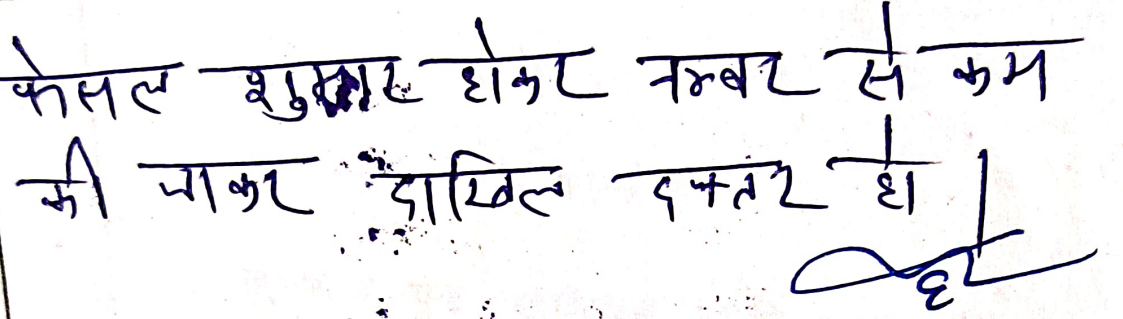 फेसल शुमार होकर नम्बर से कम
की जाकर दाखिल दफ्तर हो।